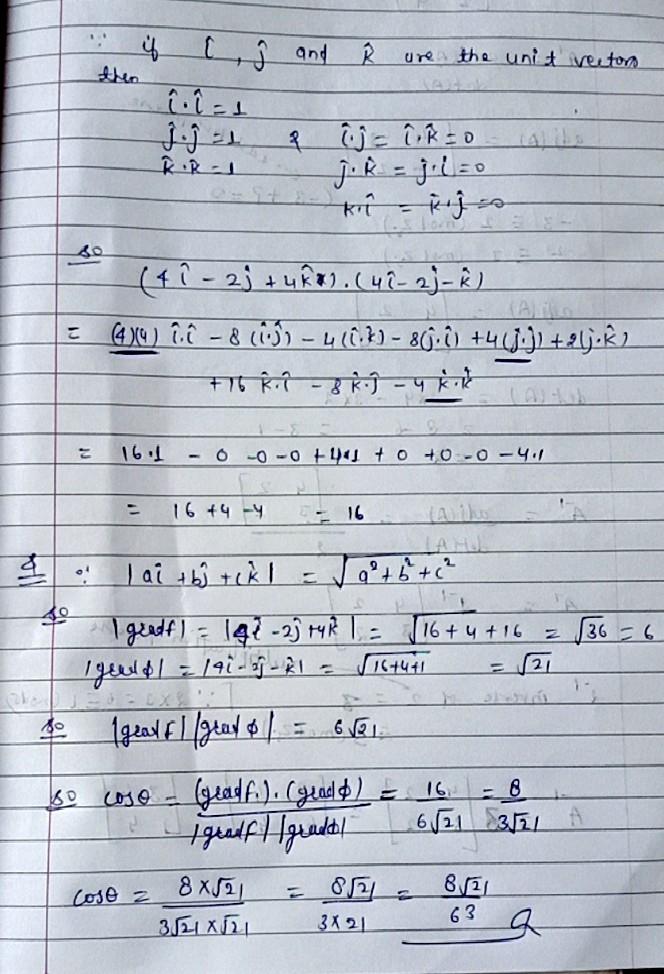 ∵ if î, ĵ and k̂ are the unit vectors
then
î·î = 1
ĵ·ĵ = 1 & î·ĵ = î·k̂ = 0
k̂·k̂ = 1 ĵ·k̂ = ĵ·î = 0
k·î = k̂·ĵ = 0
so
(4î - 2ĵ + 4k̂).(4î - 2ĵ - k̂)
= (4)(4) î.î - 8(î.ĵ) - 4(î.k̂) - 8(ĵ.î) + 4(ĵ.ĵ) + 2(ĵ.k̂)
+ 16 k̂.î - 8 k̂.ĵ - 4 k̂.k̂
= 16.1 - 0 - 0 - 0 + 4.1 + 0 + 0 - 0 - 4.1
= 16 + 4 - 4 = 16
& ∵ |aî + bĵ + ck̂| = √a² + b² + c²
so
|gradf| = |4î - 2ĵ + 4k̂| = √16 + 4 + 16 = √36 = 6
|gradϕ| = |4î - 2ĵ - k̂| = √16+4+1 = √21
so |gradf| |gradϕ| = 6√21
so cosθ = (gradf).(gradϕ) / |gradf| |gradϕ| = 16 / 6√21 = 8 / 3√21
cosθ = 8×√21 / 3√21 × √21 = 8√21 / 3×21 = 8√21 / 63